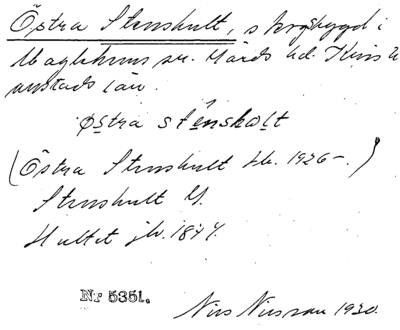 Östra Stenshult, skogsbygd i
Maglehems sn. Gärds hd. Kristi-
anstads län.
østra stensholt
(Östra Stenshult jb. 1926–.)
Stenshult Gg.
Hultet jb. 1874.
Nr 5351.
Nils Nilsson 1930.